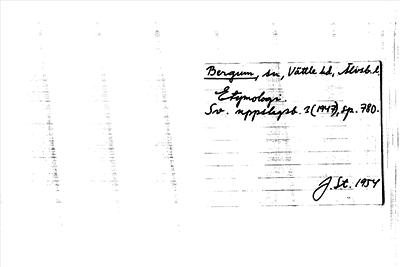 Bergum, sn, Vättle hd, Älvsb. l.
Etymologi.
Sv. uppslagsb. 3 (1947), sp. 780.
J. St. 1954